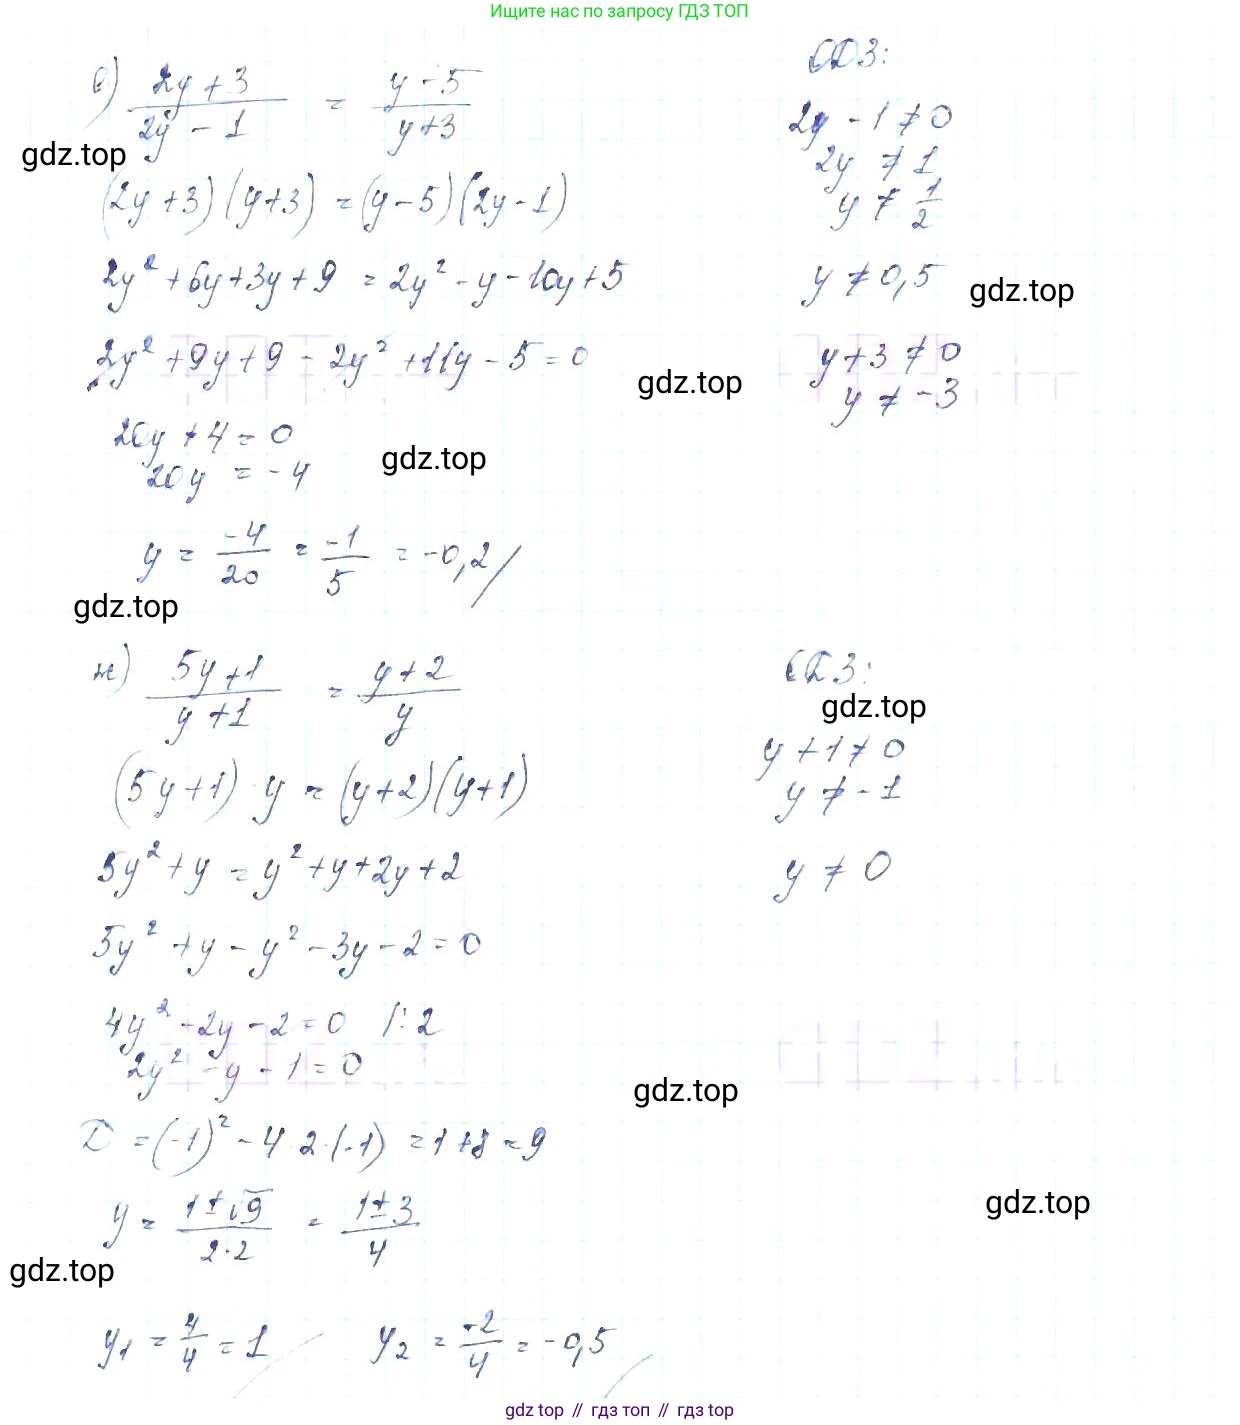 Ищите нас по запросу ГДЗ ТОП
е) (2y + 3)/(2y - 1) = (y - 5)/(y + 3)
ОДЗ:
2y - 1 ≠ 0
2y ≠ 1
y ≠ 1/2
y ≠ 0,5
y + 3 ≠ 0
y ≠ -3
gdz.top
(2y + 3)(y + 3) = (y - 5)(2y - 1)
2y² + 6y + 3y + 9 = 2y² - y - 10y + 5
gdz.top
2y² + 9y + 9 - 2y² + 11y - 5 = 0
gdz.top
20y + 4 = 0
20y = -4
gdz.top
y = -4/20 = -1/5 = -0,2
gdz.top
ж) (5y + 1)/(y + 1) = (y + 2)/y
ОДЗ:
gdz.top
y + 1 ≠ 0
y ≠ -1
y ≠ 0
(5y + 1) · y = (y + 2)(y + 1)
5y² + y = y² + y + 2y + 2
5y² + y - y² - 3y - 2 = 0
4y² - 2y - 2 = 0 /: 2
2y² - y - 1 = 0
gdz.top
D = (-1)² - 4 · 2 · (-1) = 1 + 8 = 9
y = (1 ± √9)/(2 · 2) = (1 ± 3)/4
gdz.top
gdz.top
y₁ = 4/4 = 1 y₂ = -2/4 = -0,5
gdz top // гдз топ // гдз top